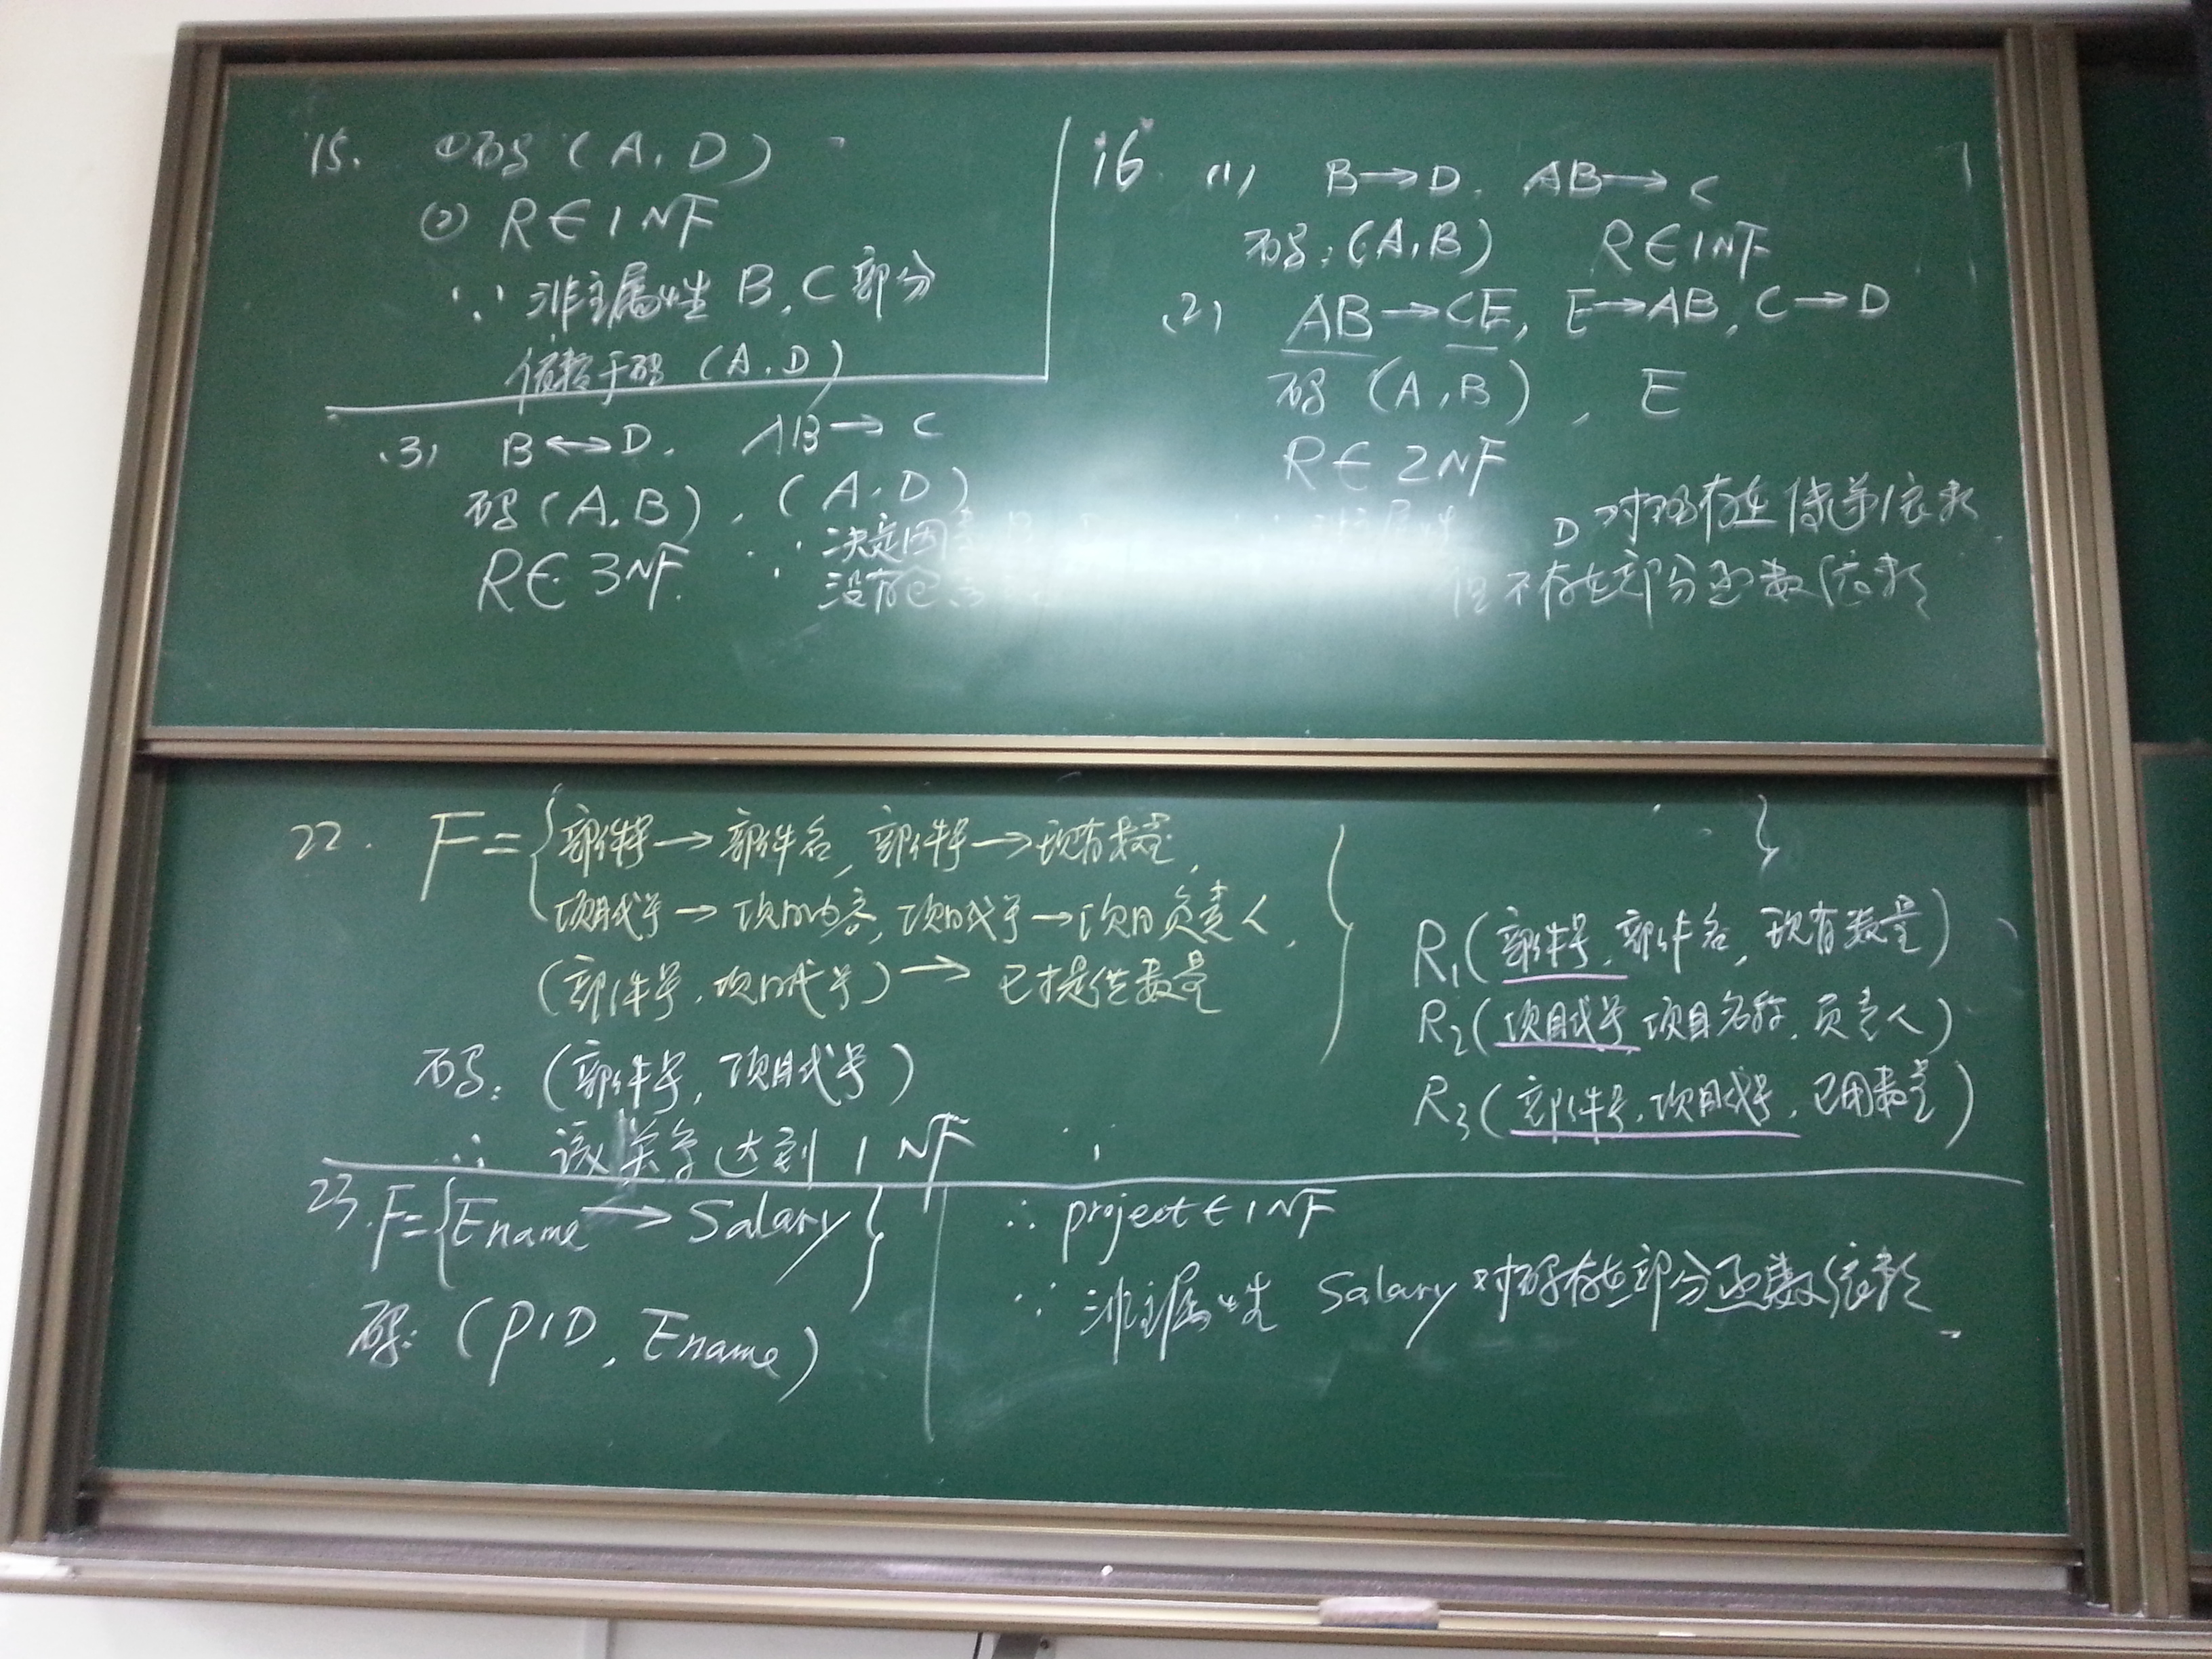 15. ①码 (A, D)
② R∈1NF
∵ 非主属性 B, C 部分
依赖于码 (A, D)
16 (1) B→D, AB→C
码: (A, B) R∈1NF
(2) AB→CE, E→AB, C→D
码 (A, B), E
R∈2NF
∵ 非主属性 D 对码存在传递依赖
但不存在部分函数依赖
(3) B↔D, AB→C
码 (A, B), (A, D)
R∈3NF. ∵ 决定因素
没有包含
22. F={部件号→部件名, 部件号→现有数量,
项目代号→项目内容, 项目代号→项目负责人,
(部件号, 项目代号)→已提供数量 }
码: (部件号, 项目代号)
∴ 该关系达到 1NF
R1(部件号, 部件名, 现有数量)
R2(项目代号, 项目名称, 负责人)
R3(部件号, 项目代号, 已用数量)
23. F={Ename→Salary}
码: (PID, Ename)
∴ project∈1NF
∵ 非主属性 Salary 对码存在部分函数依赖